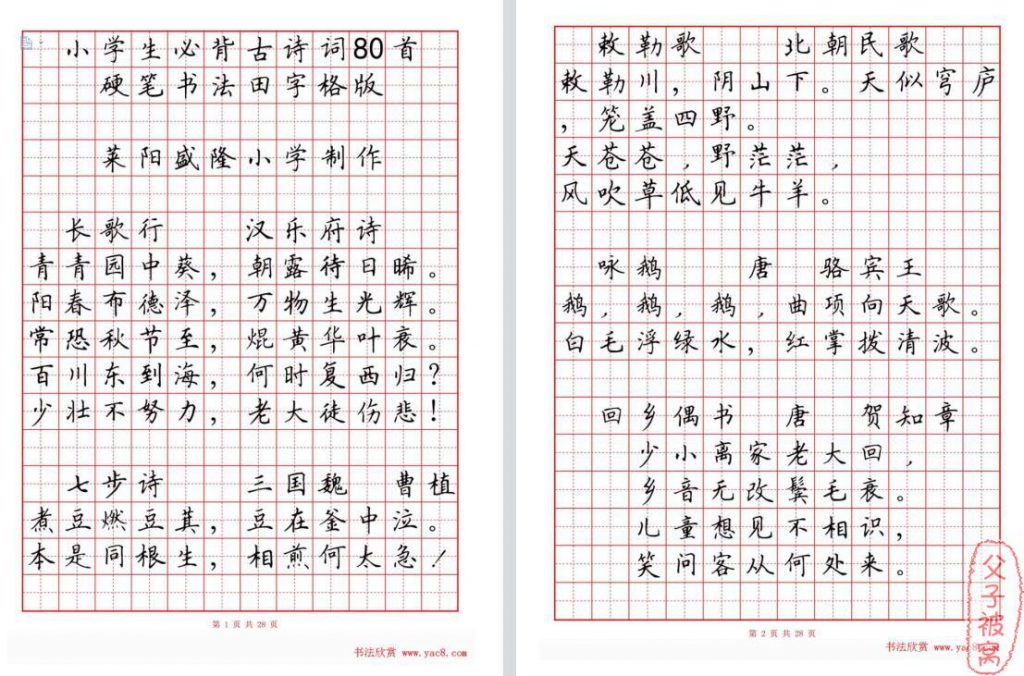 小学生必背古诗词80首
硬笔书法田字格版
莱阳盛隆小学制作
长歌行 汉乐府诗
青青园中葵，朝露待日晞。
阳春布德泽，万物生光辉。
常恐秋节至，焜黄华叶衰。
百川东到海，何时复西归？
少壮不努力，老大徒伤悲！
七步诗 三国魏 曹植
煮豆燃豆萁，豆在釜中泣。
本是同根生，相煎何太急！
第 1 页 共 28 页
书法欣赏 www.yac8.com
敕勒歌 北朝民歌
敕勒川，阴山下。天似穹庐
，笼盖四野。
天苍苍，野茫茫，
风吹草低见牛羊。
咏鹅 唐 骆宾王
鹅，鹅，鹅，曲项向天歌。
白毛浮绿水，红掌拨清波。
回乡偶书 唐 贺知章
少小离家老大回，
乡音无改鬓毛衰。
儿童想见不相识，
笑问客从何处来。
第 2 页 共 28 页
书法欣赏 www.yac8.com
父子被窝